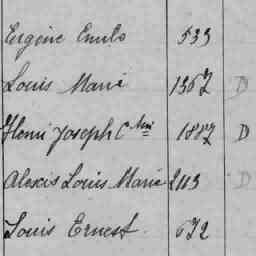 Eugène Emile 533
Louis Marie 1367 D
Henri Joseph C Mie 1887 D
Alexis Louis Marie 2113 D
Louis Ernest 672